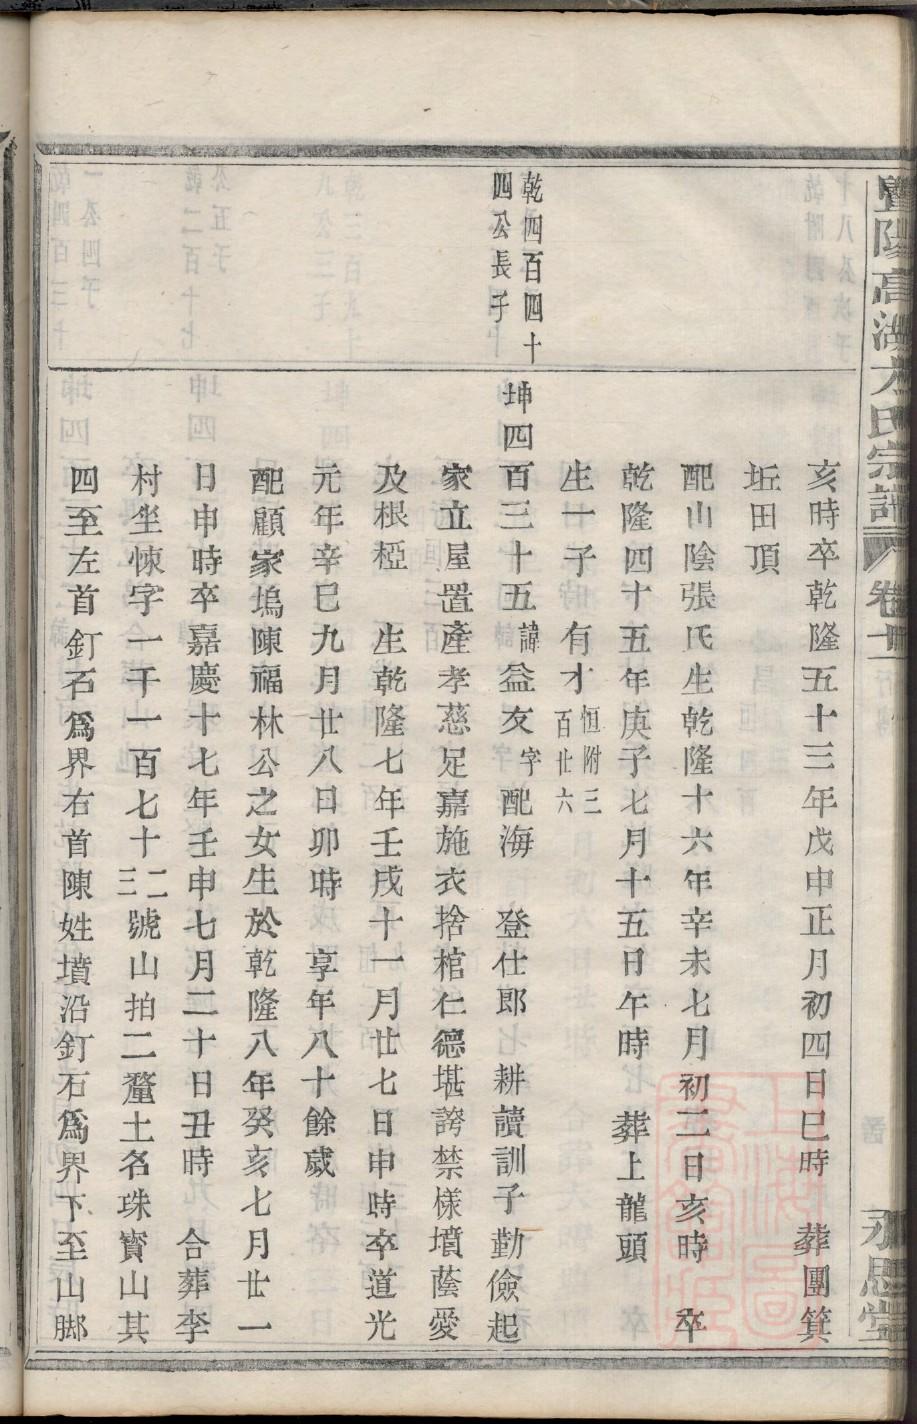 暨陽高湖方氏宗譜
卷十
永思堂
亥時卒乾隆五十三年戊申正月初四日巳時 葬團箕
坵田頂
配山陰張氏生乾隆十六年辛未七月初三日亥時 卒
乾隆四十五年庚子七月十五日午時 葬上龍頭
生一子有才恒附三百廿六
乾四百四十四公長子
坤四百三十五諱益友字配海 登仕郎 耕讀訓子勤儉起
家立屋置產孝慈足嘉施衣捨棺仁德堪誇禁樣墳蔭愛
及根椏 生乾隆七年壬戌十一月廿七日申時卒道光
元年辛巳九月廿八日卯時 享年八十餘歲
配顧家塢陳福林公之女生於乾隆八年癸亥七月廿一
日申時卒嘉慶十七年壬申七月二十日丑時 合葬李
村坐悚字一千一百七十二三號山拍二釐土名珠寶山其
四至左首釘石為界右首陳姓墳沿釘石為界下至山脚